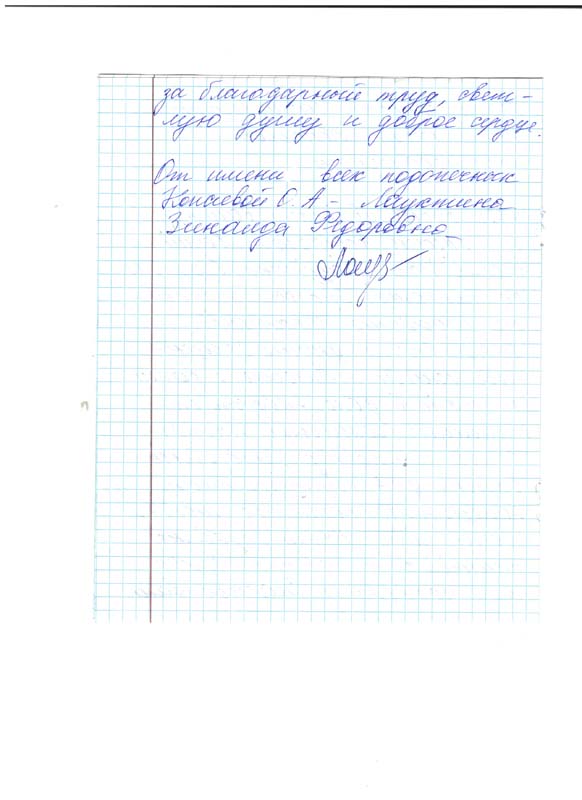 за благодарный труд, свет-
лую душу и доброе сердце.
От имени всех подопечных
Копаевой С. А - Лауктина
Зинаида Федоровна